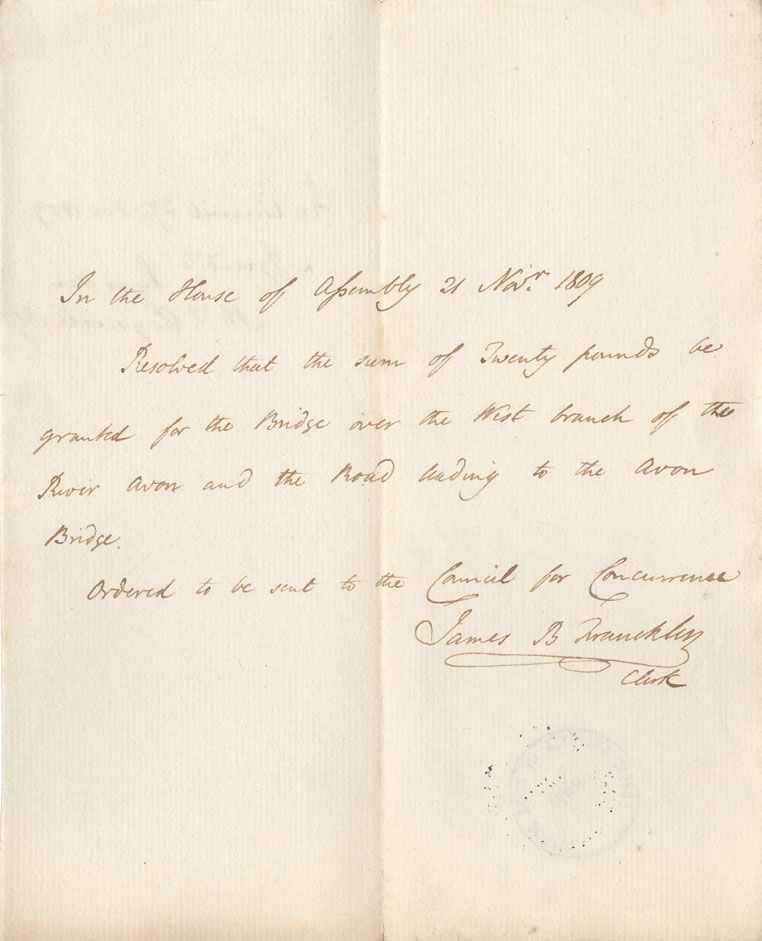 In the House of Assembly 21 Novr. 1809
Resolved that the sum of Twenty pounds be
granted for the Bridge over the West branch of the
River Avon and the Road leading to the Avon
Bridge.
Ordered to be sent to the Council for Concurrence
James B Francklin
Clerk